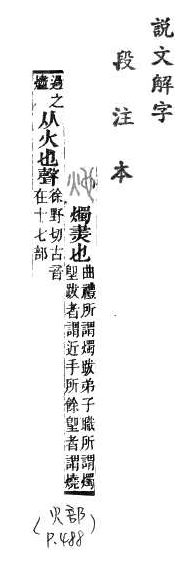 說文解字
段注本
灺
燭㶳也曲禮所謂燭跋弟子職所謂燭
堲跋者謂近手所餘堲者謂燒
過之
燼从火也聲徐野切古音
在十七部
(火部
P.488)